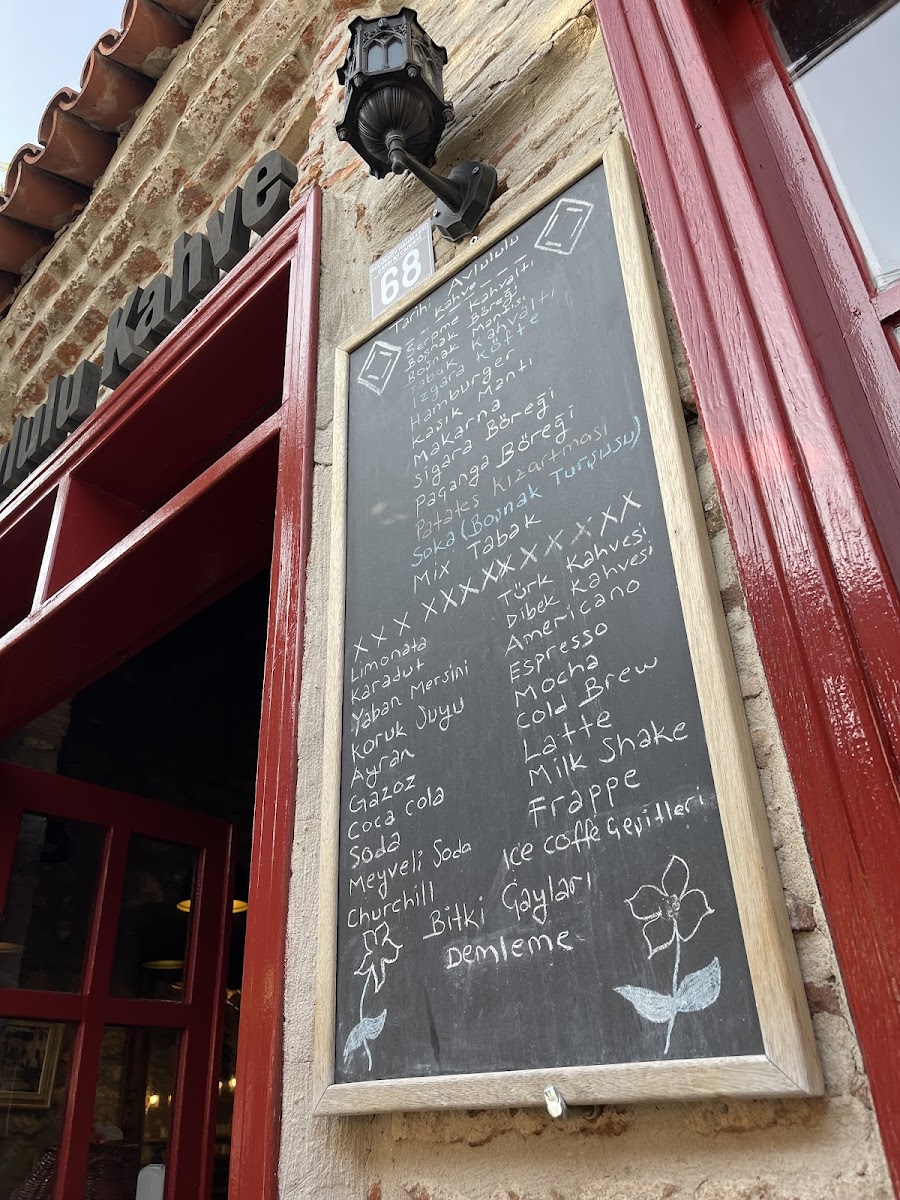 lulu Kahve
68
Tarihi Avlululu
Kahve
Serpme Kahvaltı
Boşnak Böreği
Boşnak Mantısı
Tabak Kahvaltı
Izgara Köfte
Hamburger
Kaşık Mantı
Makarna
Sigara Böreği
Paçanga Böreği
Patates Kızartması
Soka (Boşnak Turşusu)
Mix Tabak
X X X X X X X X X X X X X X
Limonata
Karadut
Yaban Mersini
Koruk Suyu
Ayran
Gazoz
Coca cola
Soda
Meyveli Soda
Churchill
Türk Kahvesi
Dibek Kahvesi
Americano
Espresso
Mocha
Cold Brew
Latte
Milk Shake
Frappe
Ice coffe Çeşitleri
Bitki Çayları
Demleme